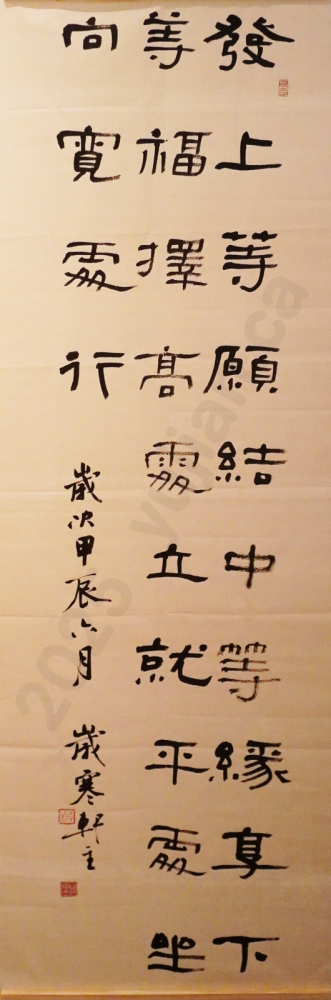 發上等願結中等緣享下
等福擇高處立就平處坐
向寬處行
歲次甲辰六月 歲寒軒主